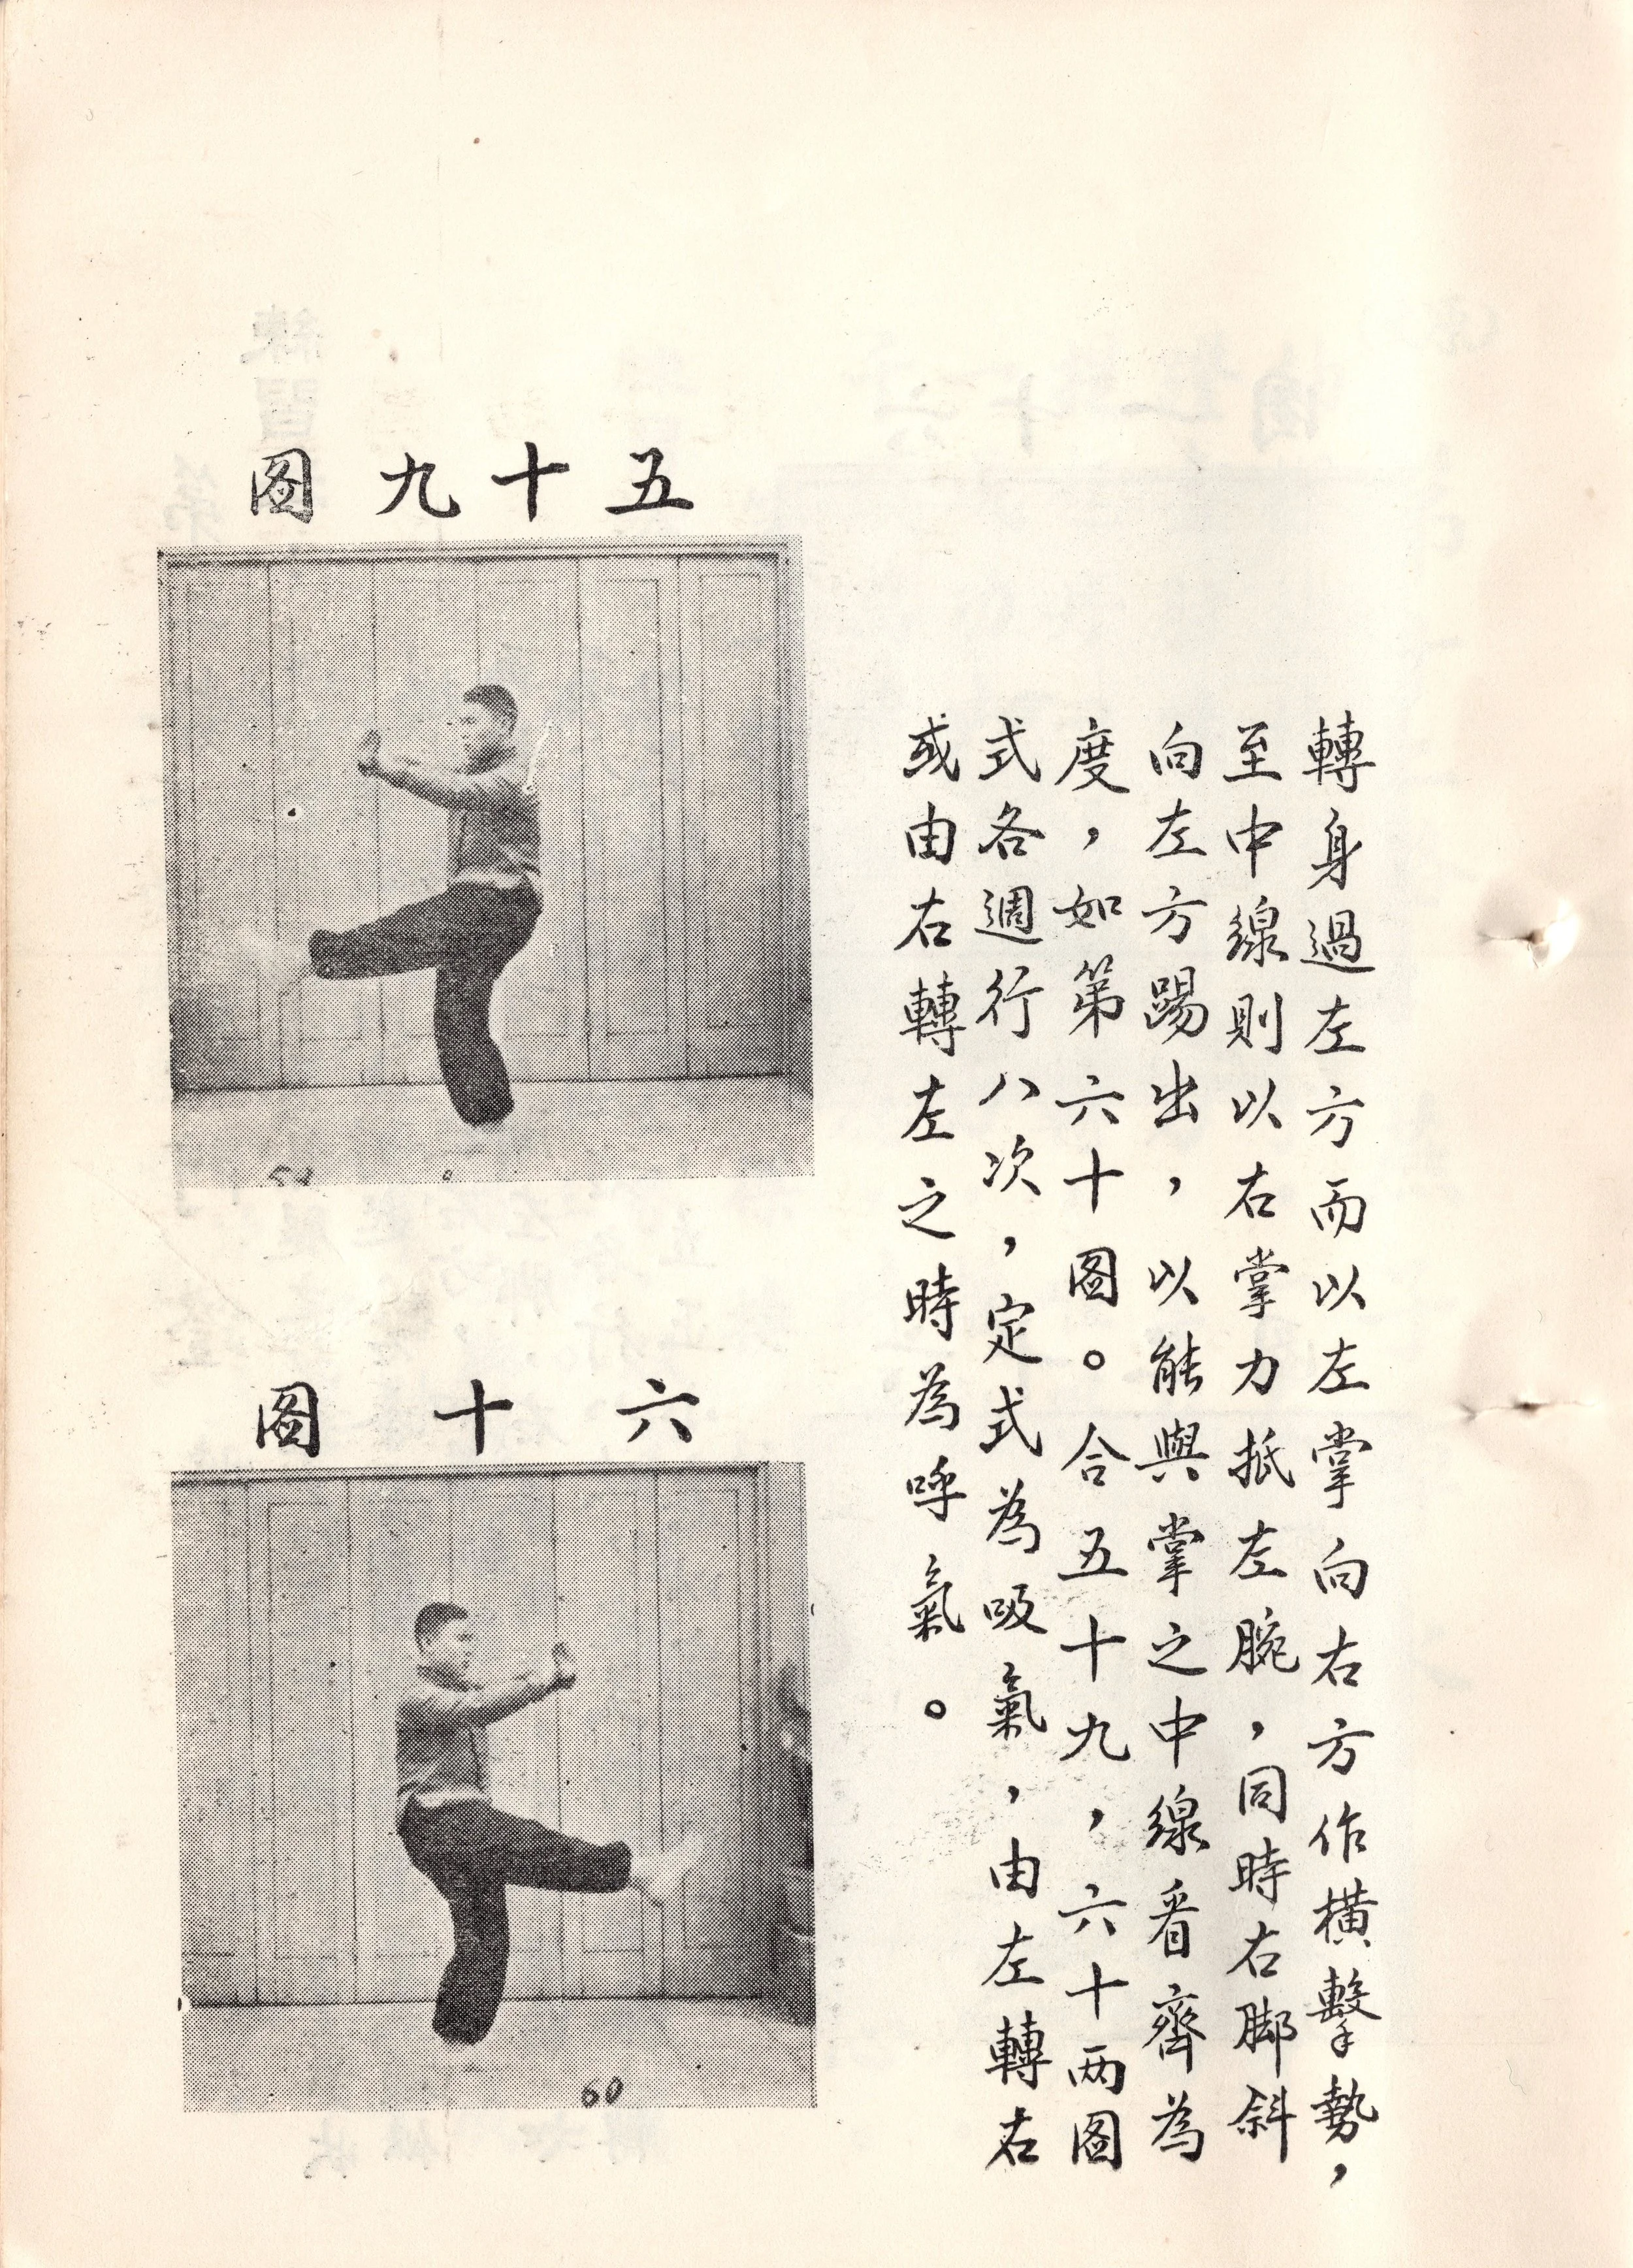 轉身過左方而以左掌向右方作橫擊勢，
至中線則以右掌力抵左腕，同時右脚斜
向左方踢出，以能與掌之中線看齊為
度，如第六十圖。合五十九，六十两圖
式各週行八次，定式為吸氣，由左轉右
或由右轉左之時為呼氣。
五十九圖
六十圖
60